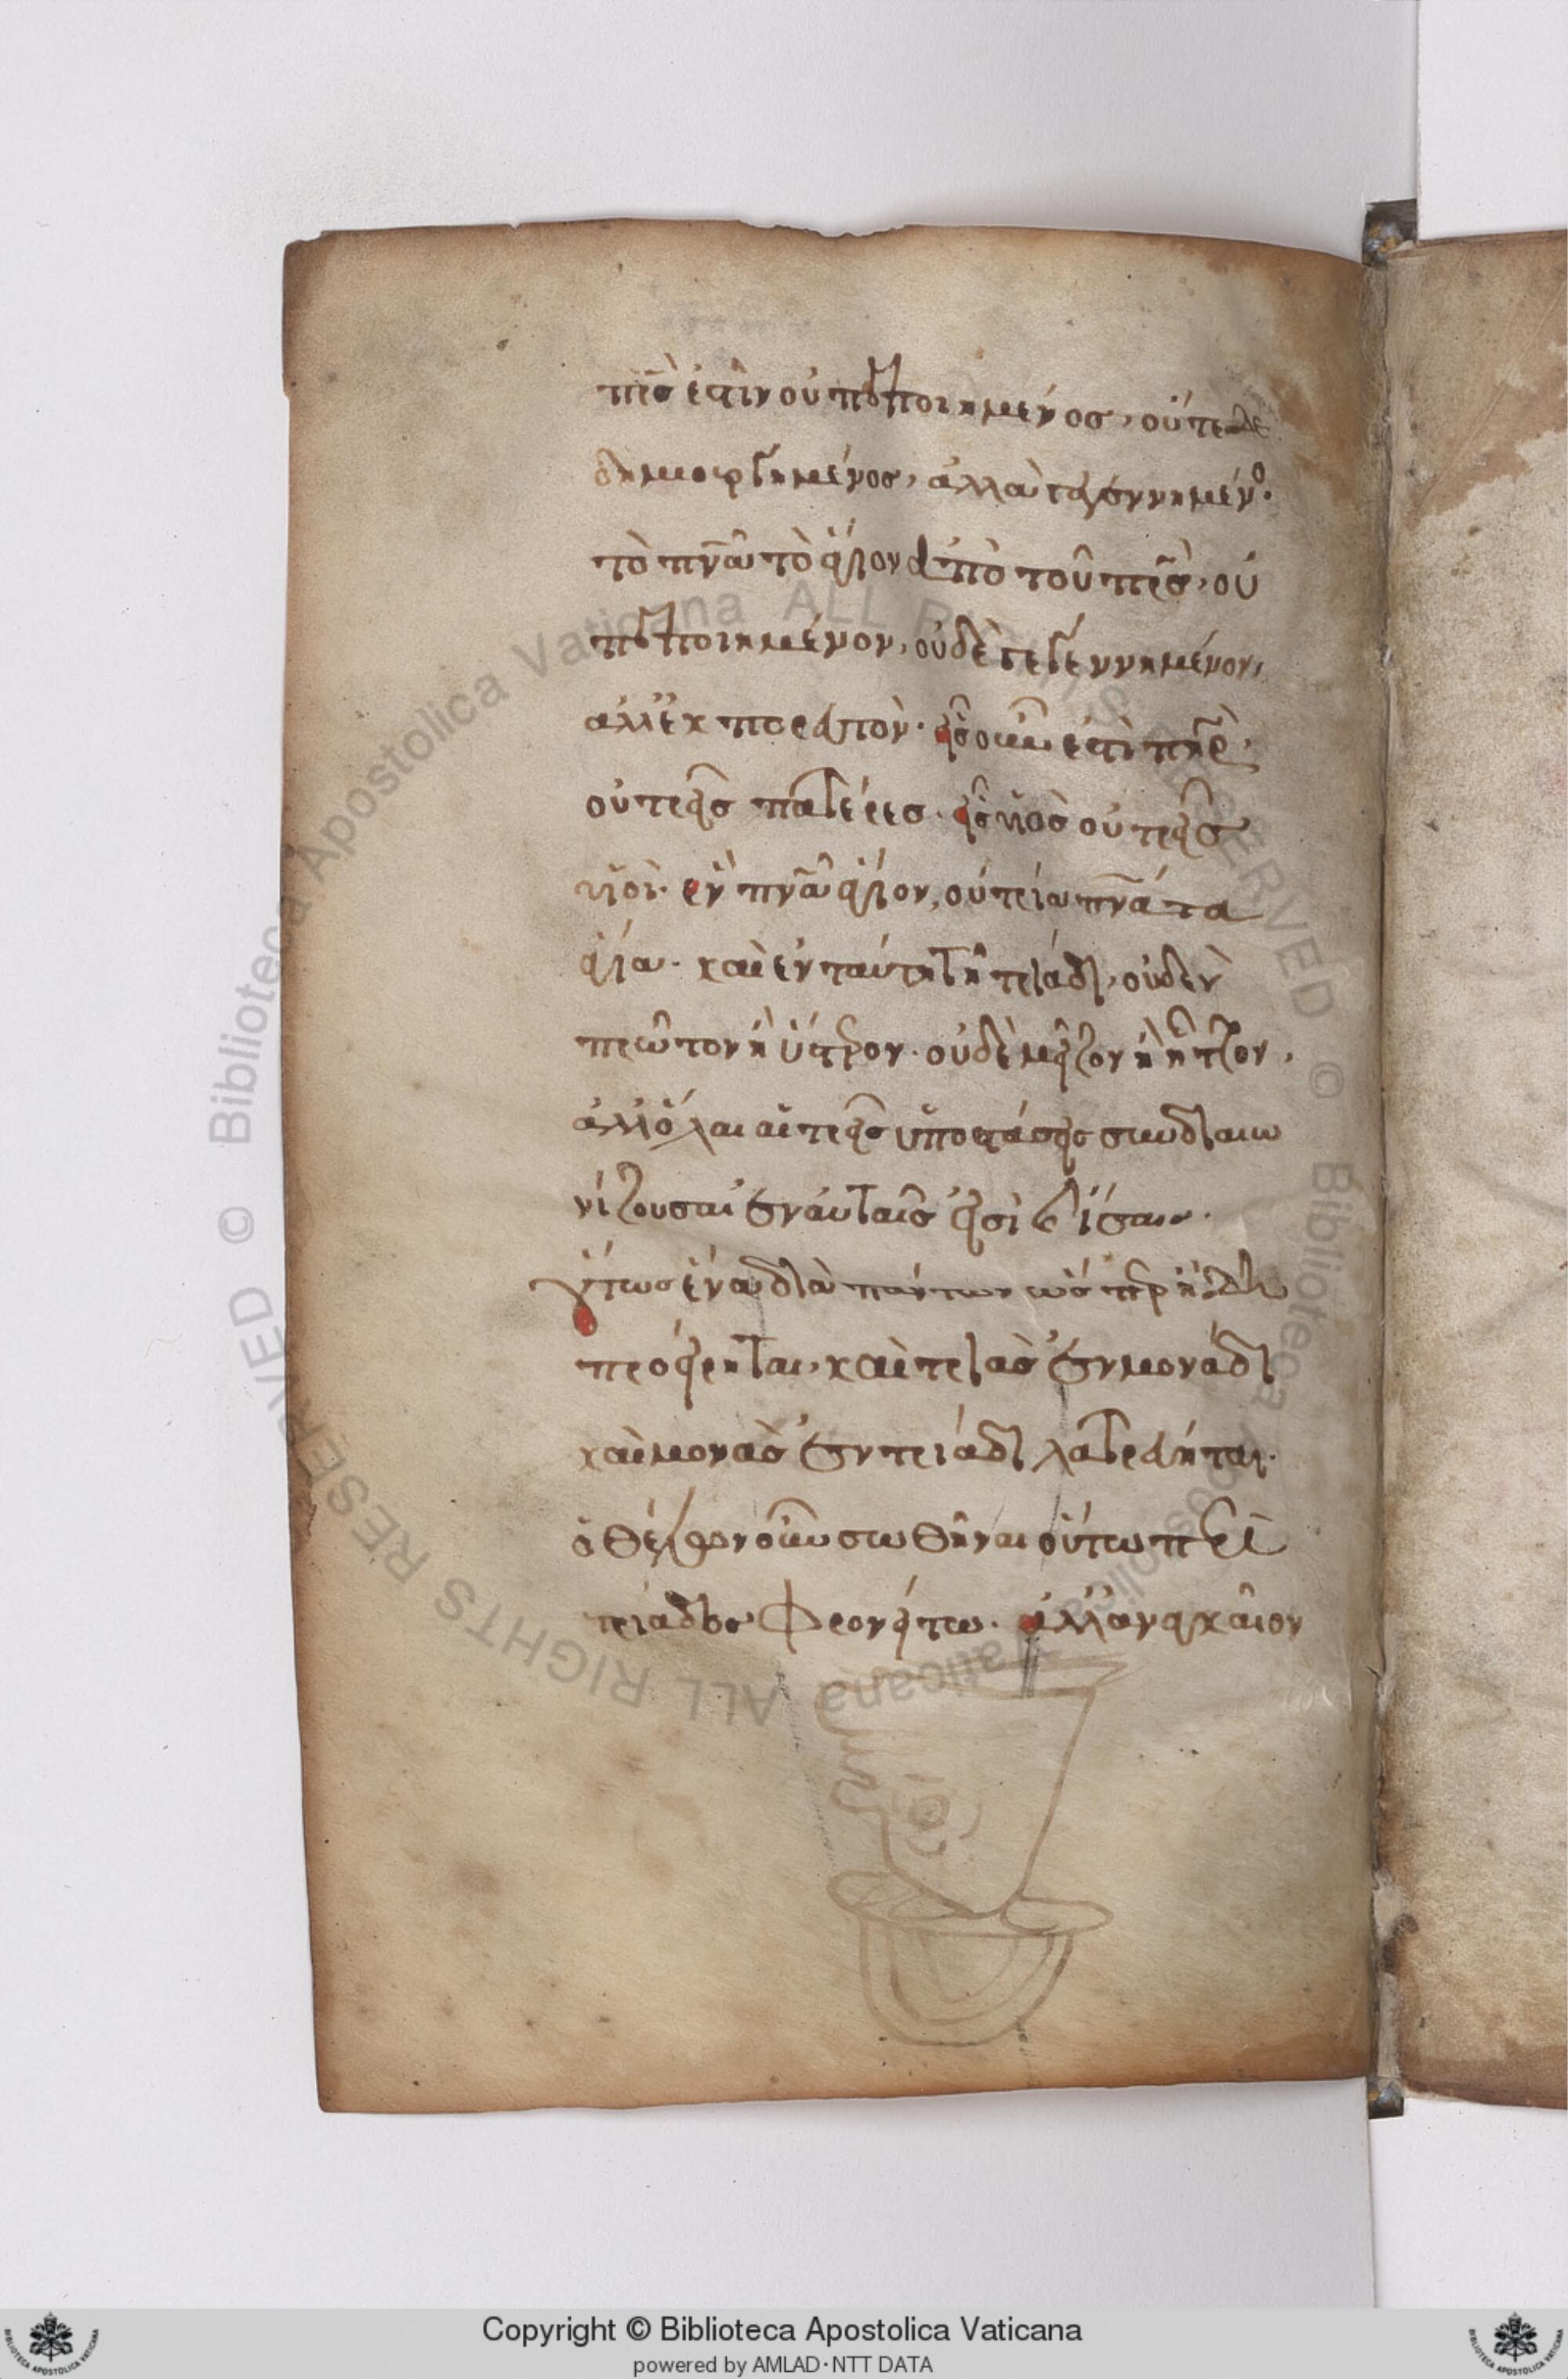 πρ̅σ̀ ἐστὶν οὐ πεποιημένος, οὔτε δε
δημιουργημένος, ἀλλὰ γεγεννημένο.
τὸ πν̅α τὸ ἅγιον ἀπὸ τοῦ πρ̅σ̀, οὐ
πεποιημένον, οὐδὲ γεγεννημένον,
ἀλλ' ἐκπορευτόν. εἷς οὖν ἐστὶ πη̅ρ,
οὐ τρεῖς πατέρες. εἷς υἱὸσ οὐ τρεῖς
υἱοί. ἓν πν̅α ἅγιον, οὐ τρία πν̅άτα
ἅγια. καὶ ἐν ταύτη τῆ τριάδι, οὐδὲν
πρῶτον ἢ ὕστερον. οὐδὲ μεῖζον ἢ ἧττον,
ἀλλ' ὅλαι αἱ τρεῖς ὑποστάσεις συνδιαιω
νίζουσαι ἐν αὐταῖς εἰσὶ καὶ ἴσαι.
οὕτως ἕνα διὰ πάντων ὥσπερ ἤδη
προείρηται, καὶ τριὰς ἐν μονάδι
καὶ μονὰς ἐν τριάδι λατρεύηται.
ὁ θέλων οὖν σωθῆναι οὕτω περὶ
τριάδος φρονείτω. ἀλλ' ἀναγκαῖον
© Biblioteca Apostolica Vaticana ALL RIGHTS RESERVED © Biblioteca Apostolica Vaticana ALL RIGHTS RESERVED
Copyright © Biblioteca Apostolica Vaticana
powered by AMLAD·NTT DATA